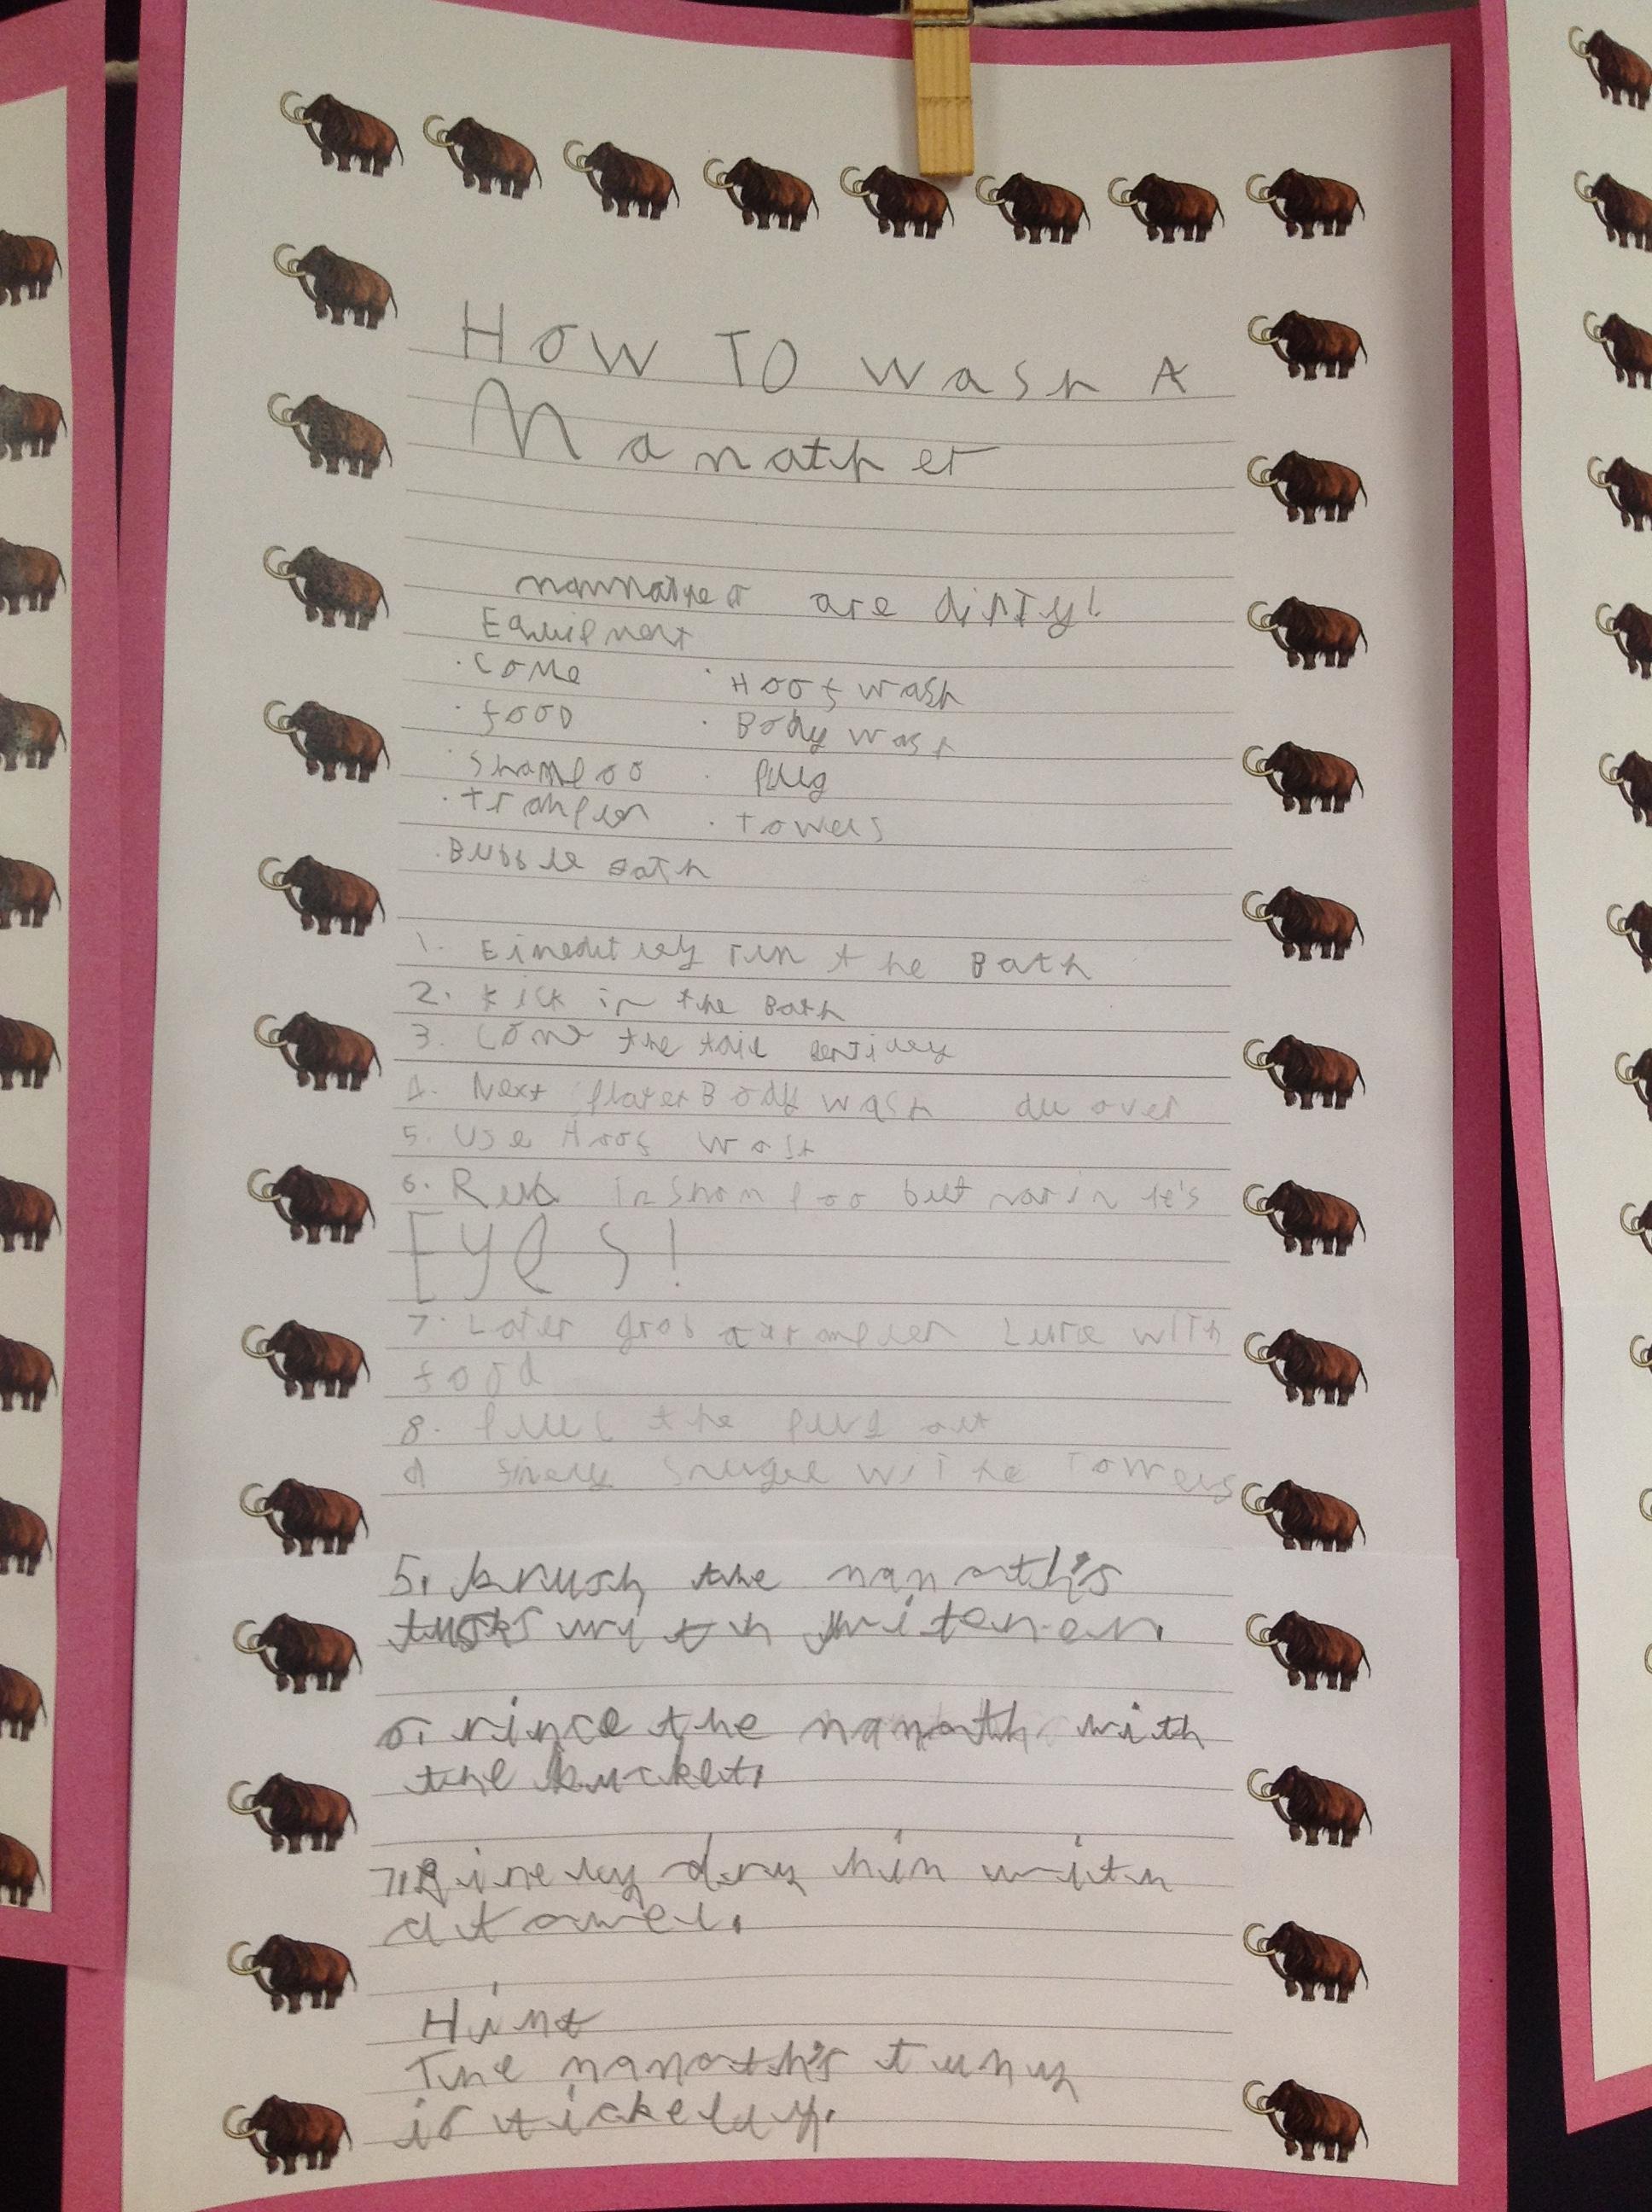 HOW TO wash A
Mamather
mammather are dirty!
Equipment
· Come · Hoof wash
· food · Body wash
· Shampoo · plug
· trampler · Towels
· Bubble Bath
1. Eimedutley run the Bath
2. kick in the Bath
3. Come the tail
4. Next Body wash all over
5. Use Hoof wash
6. Rub in Shampoo but not in it's
Eyes!
7. Later grab a trampler Lure with
food
8. pull the plug out
9 finely Snugel wit he Towels
5. brush the mamoth's
tusks with witener.
6. rince the mamoth with
the bucket.
7. finely dry him with
a towel.
Hint
The mamoth's tumy
is tickeldy.